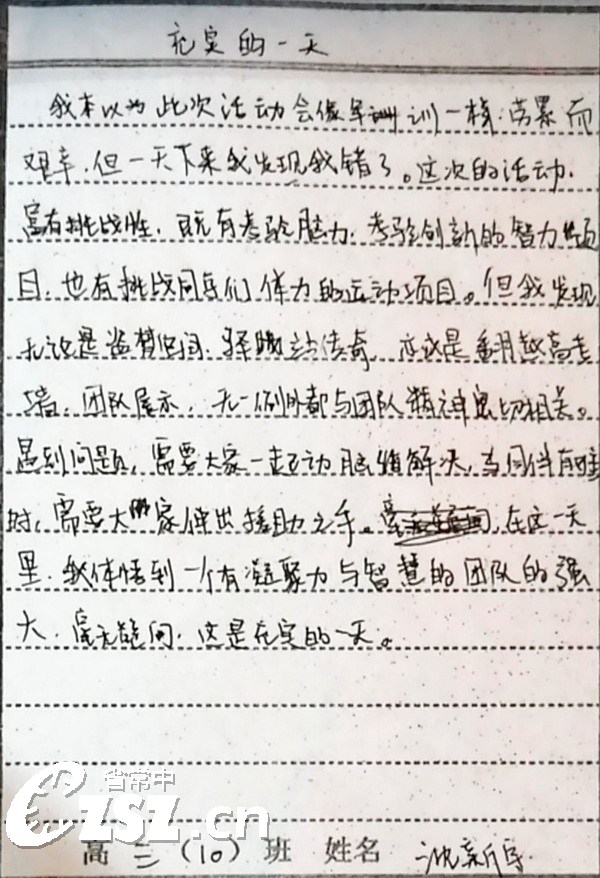 充实的一天
我本以为此次活动会像军训一样劳累而
艰辛,但一天下来我发现我错了。这次的活动
富有挑战性,既有考验脑力,考验创新的智力项
目,也有挑战同学们体力的运动项目。但我发现
无论是盗梦空间、驿站传奇,亦或是翻越高考
墙,团队展示,无一例外都与团队精神密切相关。
遇到问题,需要大家一起动脑解决,当同伴有难
时,需要大家伸出援助之手。在这一天
里,我体悟到一个有凝聚力与智慧的团队的强
大,毫无疑问,这是充实的一天。
省常中
czsz.cn
高三(10)班 姓名 沈新